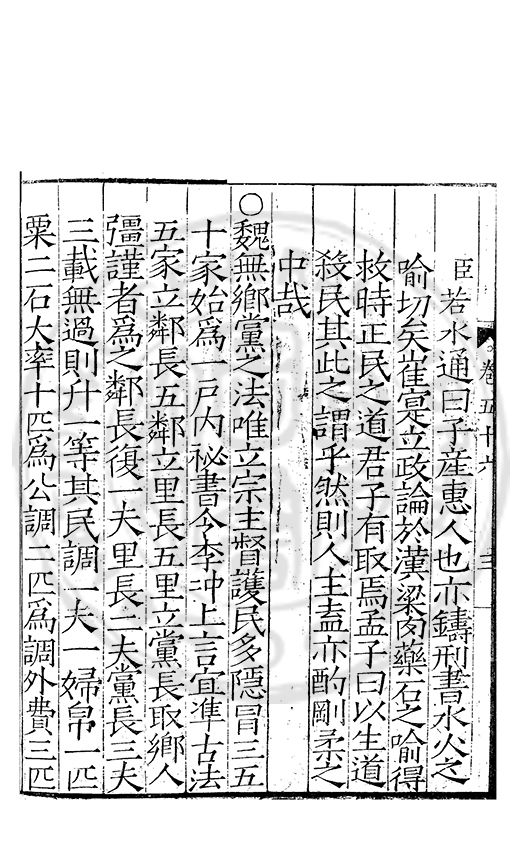 卷五十六
三
臣若水通曰子產惠人也亦鑄刑書水火之
喻切矣崔寔立政論於漢粱肉藥石之喻得
救時正民之道君子有取焉孟子曰以生道
殺民其此之謂乎然則人主盍亦酌剛柔之
中哉
○魏無鄉黨之法唯立宗主督護民多隱冒三五
十家始爲一戸内秘書令李冲上言宜準古法
五家立鄰長五鄰立里長五里立黨長取鄉人
彊謹者爲之鄰長復一夫里長二夫黨長三夫
三載無過則升一等其民調一夫一婦帛一匹
粟二石大率十匹爲公調二匹爲調外費三匹